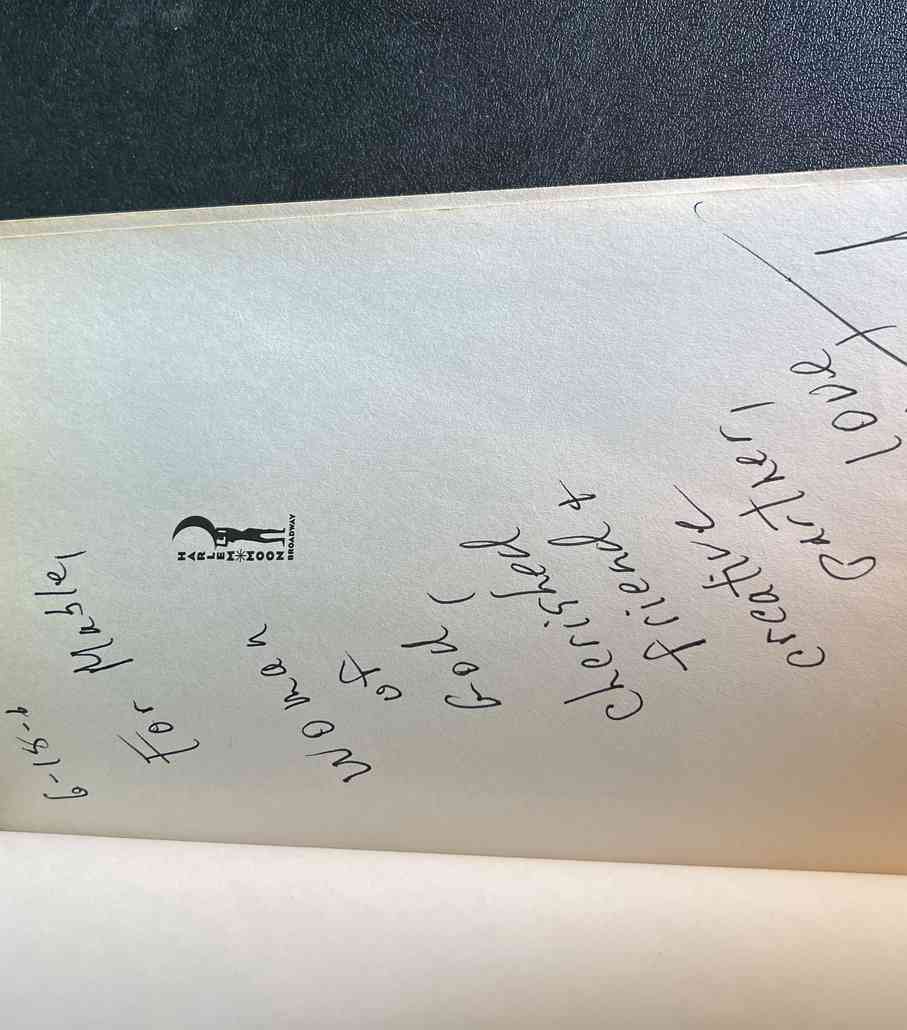 6-15-6
For Mable,
Woman
of
God (
cherished
friend &
creative
partner,
love
HARLEM
MOON
BROADWAY